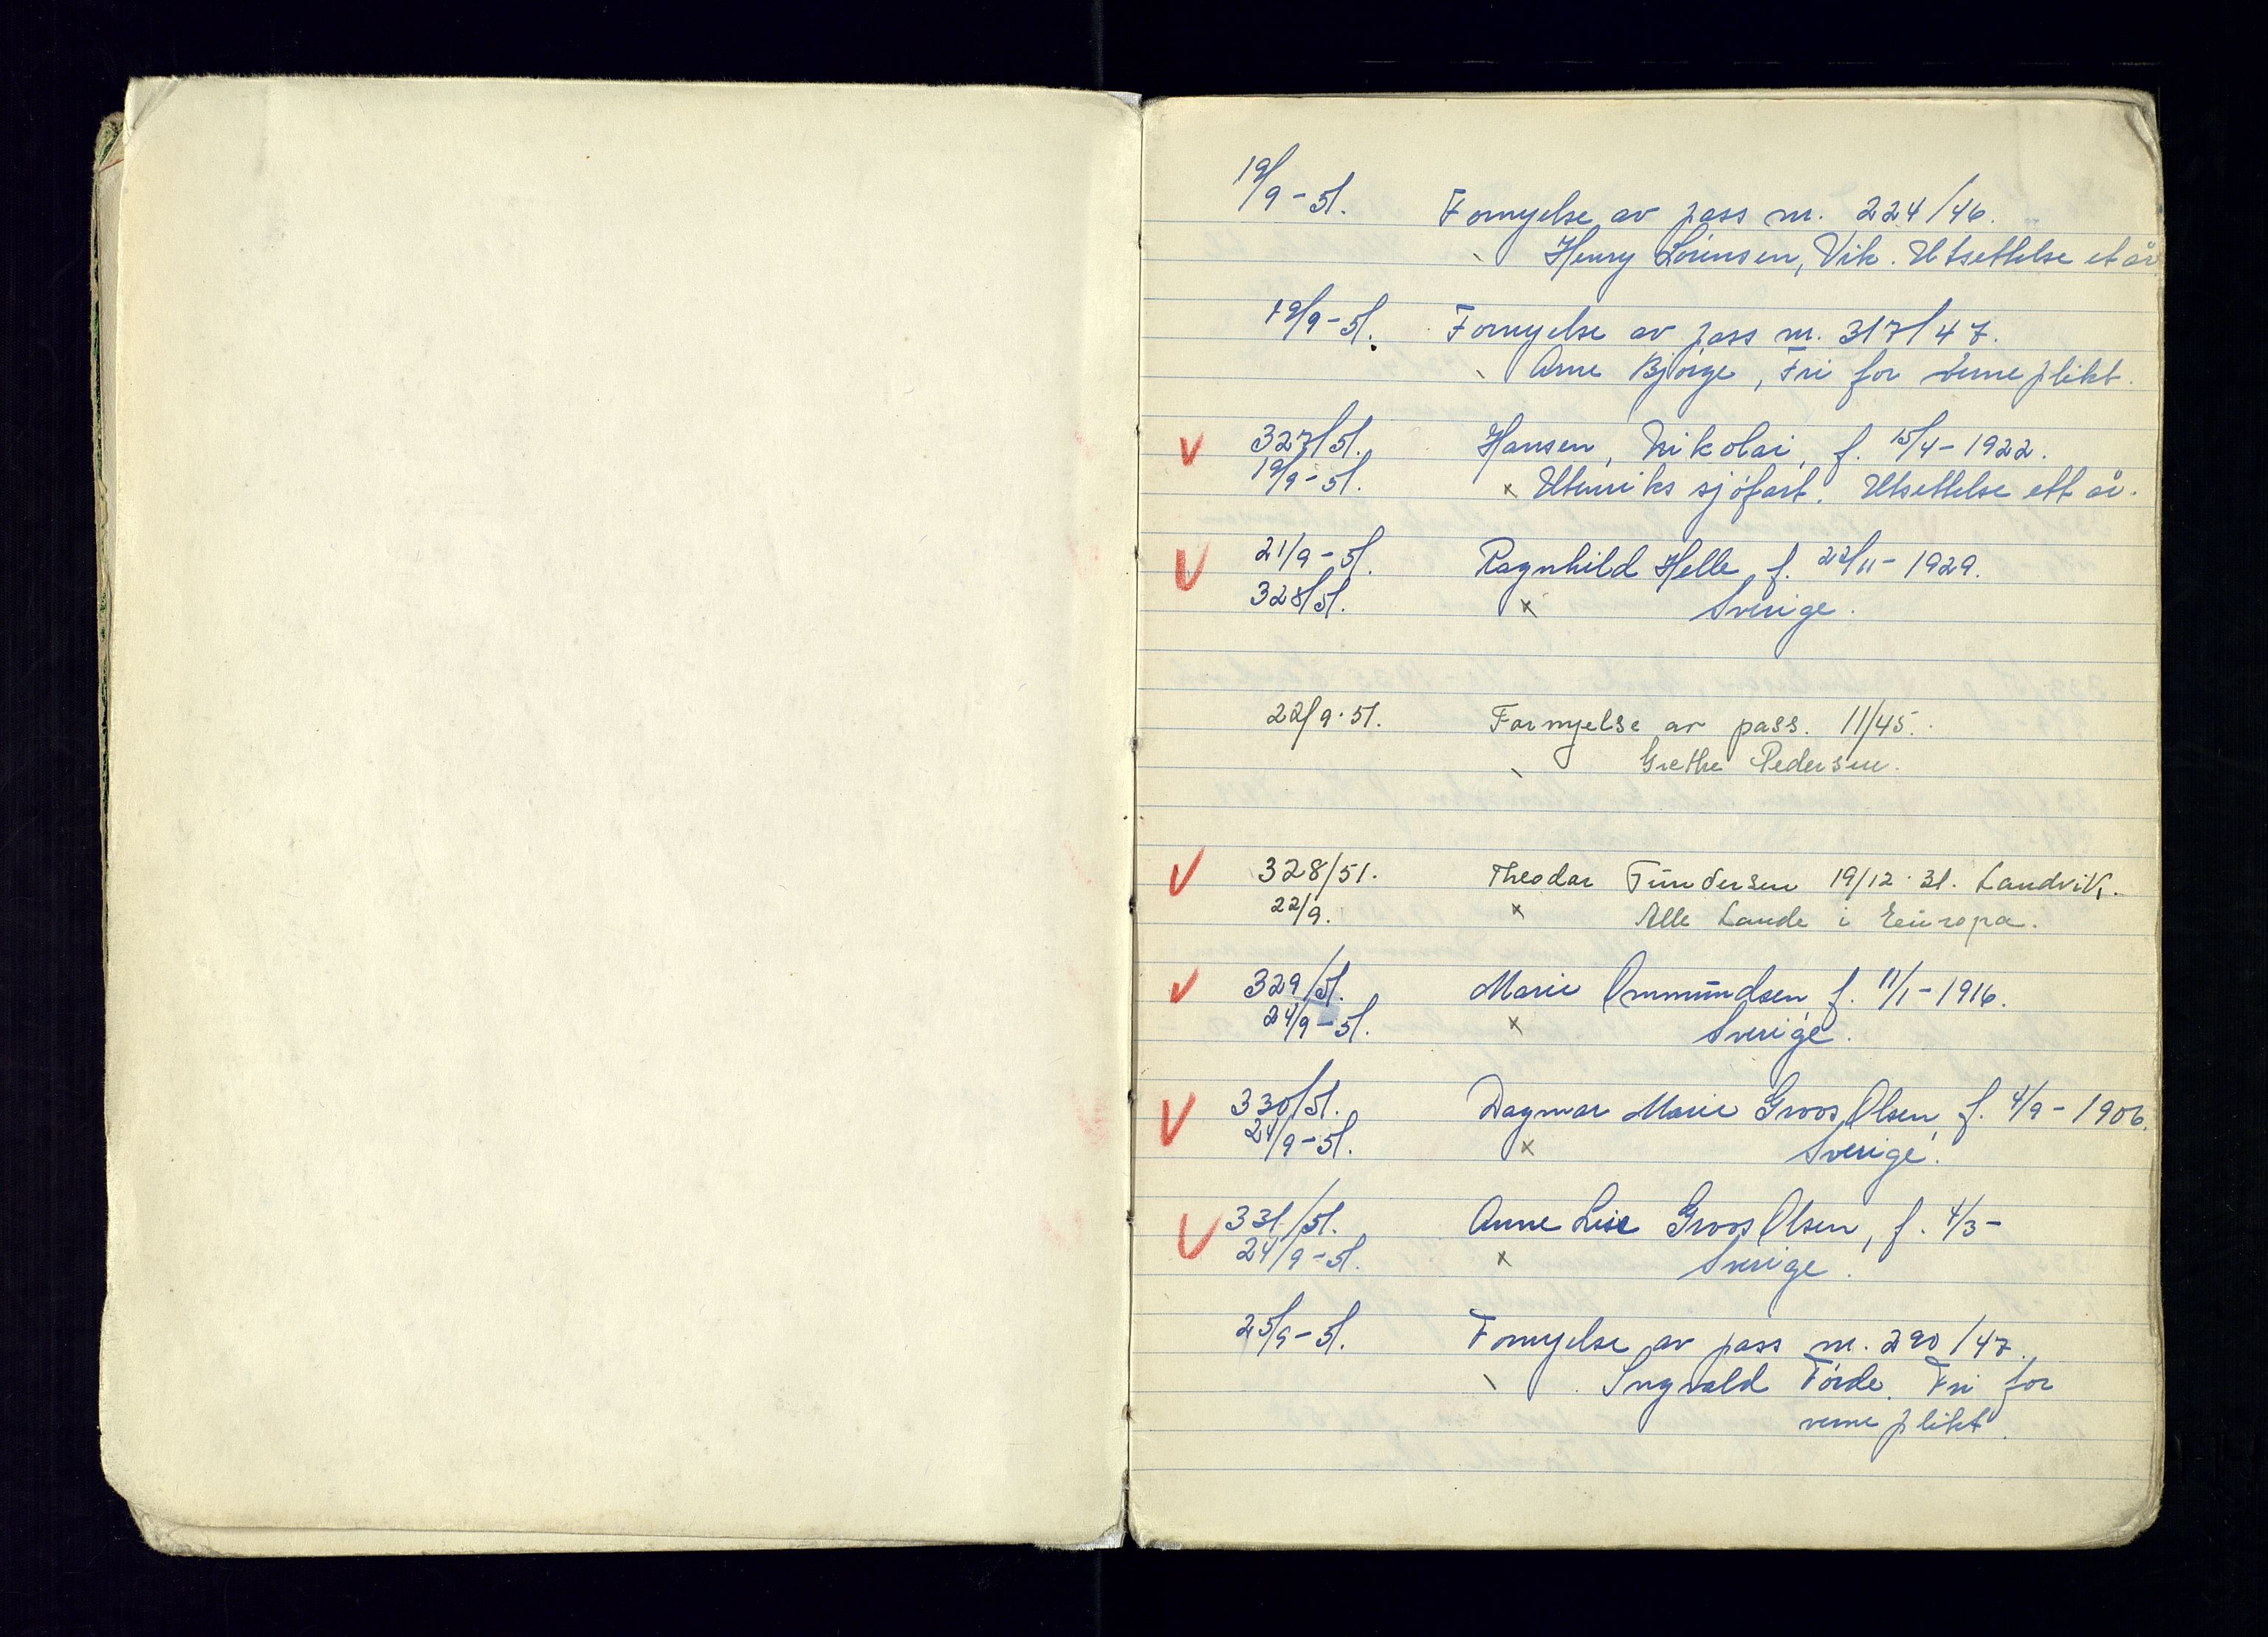 19/9-51. Fornyelse av pass nr. 224/46.
Henry Lorensen, Vik. Utsettelse et år
19/9-51. Fornyelse av pass nr. 317/47.
Arne Bjorge, Fri for verneplikt.
V 327/51. Hansen, Nikolai, f. 15/4-1922.
19/9-51. x Utenriks sjøfart. Utsettelse ett år.
V 21/9-51. Ragnhild Helle f. 22/11-1929.
328/51. x Sverige.
22/9.51. Fornyelse av pass. 11/45.
Grethe Pedersen.
V 328/51. Theodor Gundersen 19/12.31. Landvik.
22/9. x Alle Lande i Europa.
V 329/51. Marie Ommundsen, f. 11/1-1916.
24/9-51. x Sverige.
V 330/51. Dagmar Marie Groos Olsen, f. 4/9-1906.
24/9-51. x Sverige.
V 331/51. Anne Lise Groos Olsen, f. 4/3-
24/9-51. x Sverige.
25/9-51. Fornyelse av pass nr. 290/47.
Ingvald Förde. Fri for
verneplikt.